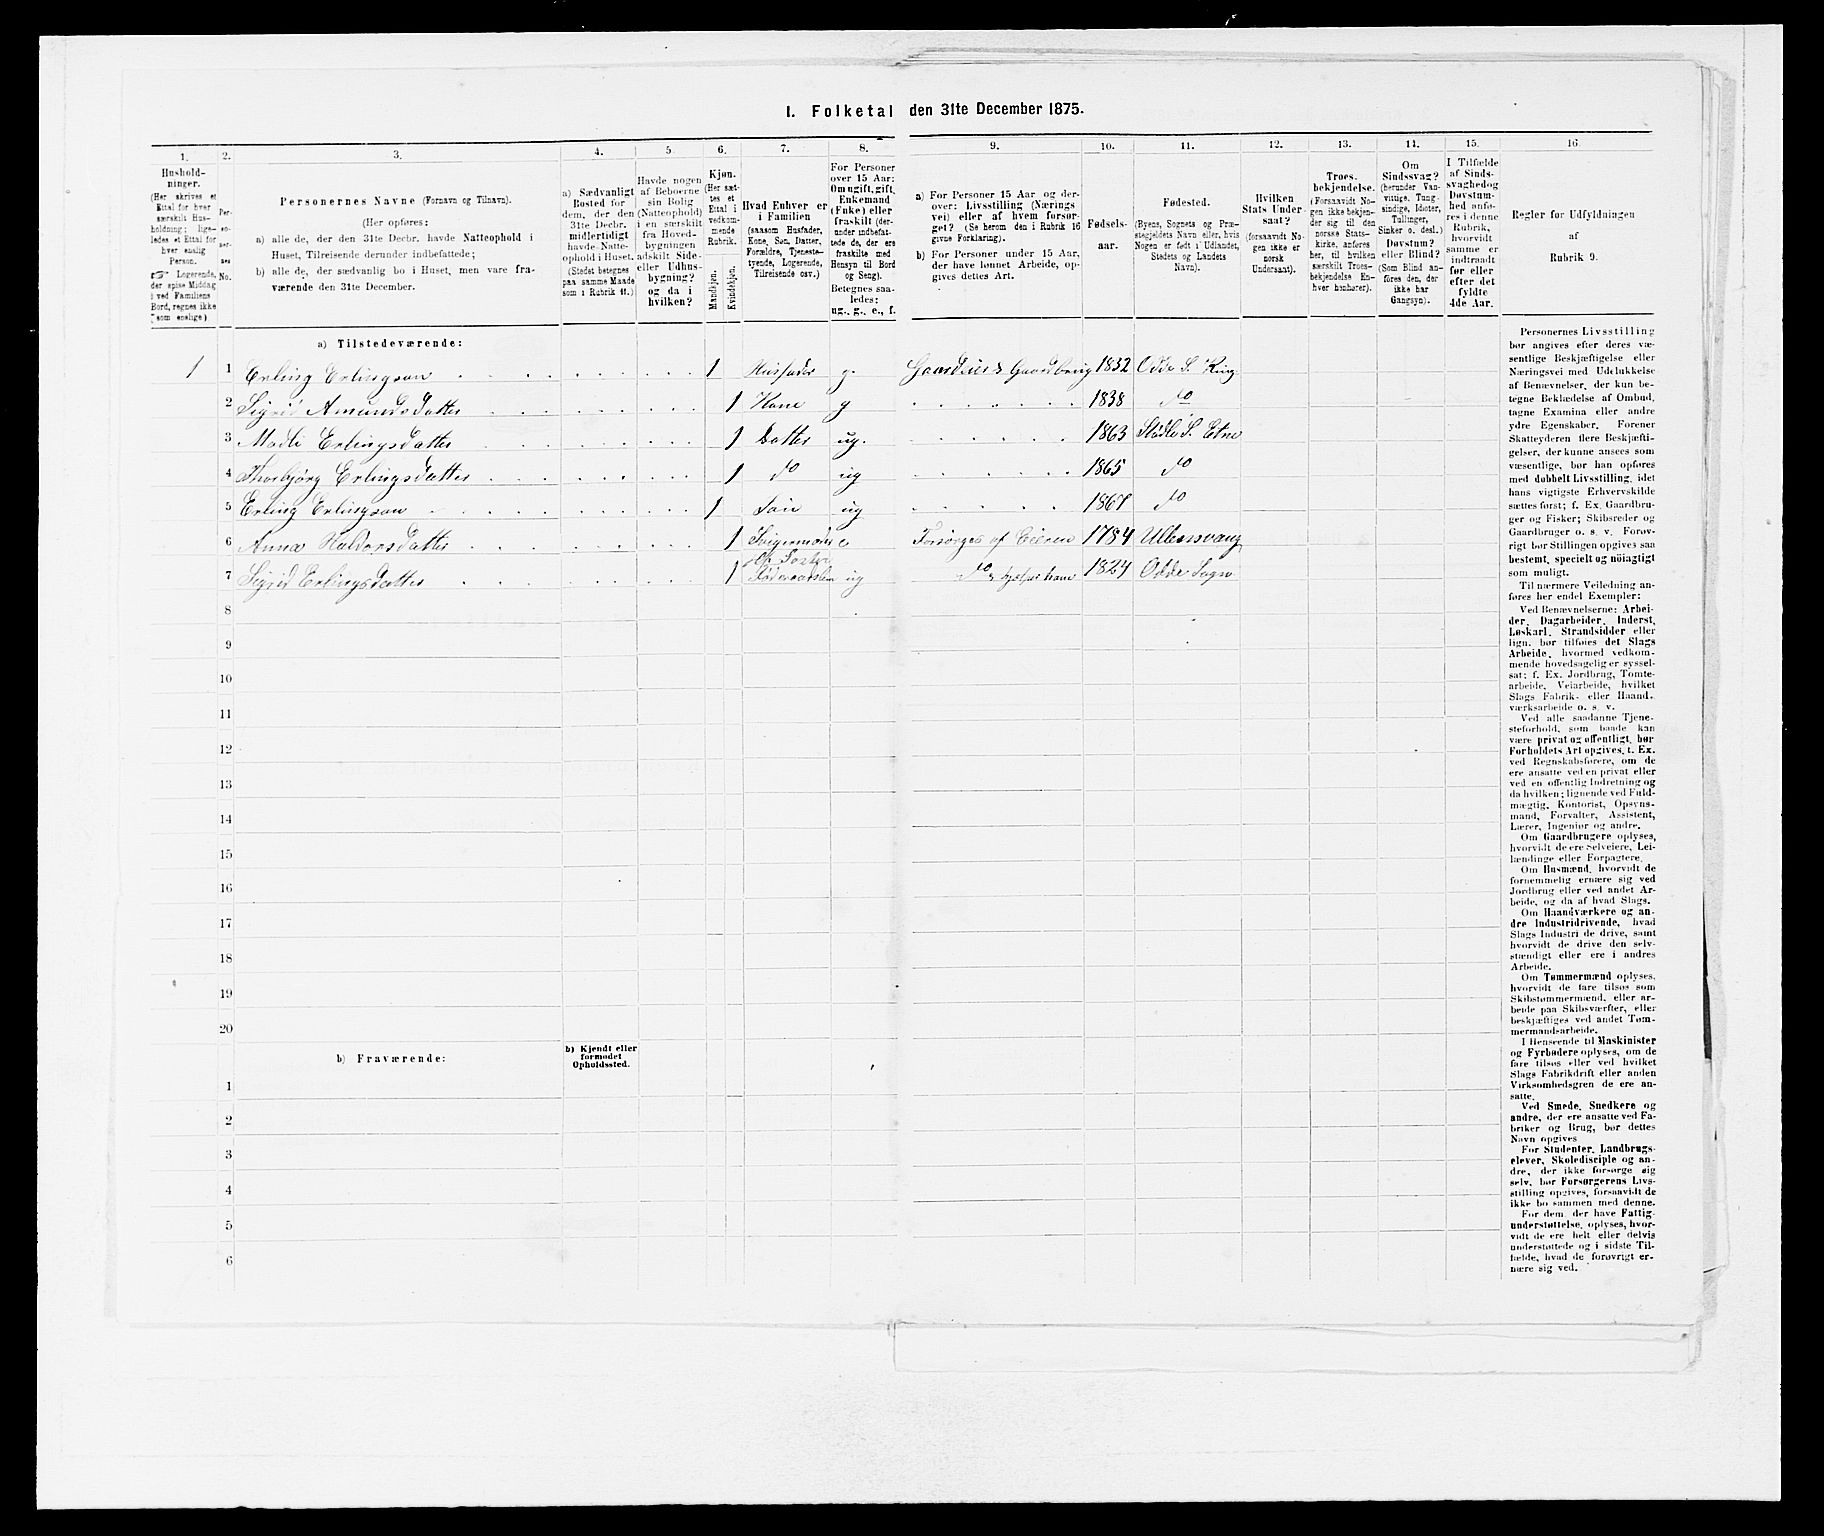 I. Folketal den 31te December 1875.
1. 2. 3. 4. 5. 6. 7. 8. 9. 10. 11. 12. 13. 14. 15. 16.
Hushold-
ninger.
(Her skrives et
Ettal for hver
særskilt Hus-
holdning; lige-
ledes et Ettal for
hver enslig
Person.
☞ Logerende,
der spise Middag
i ved Familiens
Bord, regnes ikke
som enslige.)
Per-
so-
ner-
nes
No.
Personernes Navne (Fornavn og Tilnavn).
(Her opføres:
a) alle de, der den 31te Decbr. havde Natteophold i
Huset, Tilreisende derunder indbefattede;
b) alle de, der sædvanlig bo i Huset, men vare fra-
værende den 31te December.
a) Sædvanligt
Bosted for
dem, der den
31te Decbr.
midlertidigt
havde Natte-
ophold i Huset.
(Stedet betegnes
paa samme Maade
som i Rubrik 11.)
Havde nogen
af Beboerne
sin Bolig
(Natteophold)
i en særskilt
fra Hoved-
bygningen
adskilt Side-
eller Udhus-
bygning?
og da i
hvilken?
Kjøn.
(Her sæt-
tes et
Ettal i
vedkom-
mende
Rubrik.
Mandkjøn.
Kvindekjøn.
Hvad Enhver er
i Familien
(saasom Husfader,
Kone, Søn, Datter,
Forældre, Tjeneste-
tyende, Logerende,
Tilreisende osv.)
For Personer
over 15 Aar:
Om ugift, gift,
Enkemand
(Enke) eller
fraskilt (der-
under indbefat-
tede de, der ere
fraskilte med
Hensyn til Bord
og Seng).
Betegnes saa-
ledes:
ug., g., e., f.
a) For Personer 15 Aar og der-
over: Livsstilling (Nærings
vei) eller af hvem forsør-
get? (Se herom den i Rubrik 16
givne Forklaring).
b) For Personer under 15 Aar,
der have lønnet Arbeide, op-
gives dettes Art.
Fødsels-
aar.
Fødested.
(Byens, Sognets og Præ-
stegjeldets Navn eller, hvis
Nogen er født i Udlandet,
Stedets og Landets
Navn).
Hvilken
Stats Under
saat?
(forsaavidt No-
gen ikke er
norsk
Undersaat).
Troes.
bekjendelse.
(Forsaavidt No-
gen ikke bekjen-
der sig til den
norske Stats-
kirke, anføres
her, til hvilken
særskilt Troes-
bekjendelse En-
hver henhører).
Om
Sindssvag?
(herunder Van-
vittige, Tung-
sindige, Idioter,
Tullinger,
Sinker o. desl.)
Døvstum?
eller Blind?
(Som Blind an-
føres den, der
ikke har
Gangsyn).
I Tilfælde
af Sinds-
svaghed og
Døvstum-
hed anfø-
res i denne
Rubrik,
hvorvidt
samme er
indtraadt
før eller
efter det
fyldte
4de Aar.
Regler for Udfyldningen
af
Rubrik 9.
a) Tilstedeværende:
1 1 Erling Erlingsøn 1 Husfader g. Gaardeier & Gaardbrug 1832 Odde S. King.
2 Sigrid Amunds Datter 1 Kone g 1838 do
3 Madli ErlingsDatter 1 Datter ug. 1863 Stødle S. Etne
4 Thorbjørg ErlingsDatter 1 do ug 1865 do
5 Erling Erlingsøn 1 Søn ug do
6 Anna HaldorsDatter 1 Svigermoder e Forsørges af Eieren 1784 Ullensvang
7 Sigrid ErlingsDatter 1 ug do & hjelper ham Odde Sogn
8
9
10
11
12
13
14
15
16
17
18
19
20
b) Fraværende:
b) Kjendt eller
formodet
Opholdssted.
1
2
3
4
5
6
Personernes Livsstilling
bør angives efter deres væ-
sentlige Beskjæftigelse eller
Næringsvei med Udelukkelse
af Benævnelser, der kun be-
tegne Beklædelse af Ombud,
tagne Examina eller andre
ydre Egenskaber. Forener
Skatteyderen flere Beskjæfti-
gelser, der kunne ansees som
væsentlige, bør han opføres
med dobbelt Livsstilling, idet
hans vigtigste Erhvervskilde
sættes først; f. Ex. Gaardbru-
ger og Fisker; Skibsreder og
Gaardbruger o. s. v. Forøv-
rigt bør Stillingen opgives saa
bestemt, specielt og nøiagtigt
som muligt.
Til nærmere Veiledning an-
føres her endel Exempler:
Ved Benævnelserne: Arbei-
der, Dagarbeider, Inderst,
Løskarl, Strandsidder eller
lign. bør tilføies det Slags
Arbeide, hvormed vedkom-
mende hovedsagelig er syssel-
sat; f. Ex. Jordbrug, Tomte-
arbeide, Veiarbeide, hvilket
Slags Fabrik- eller Haand-
værksarbeide o. s. v.
Ved alle saadanne Tjene-
steforhold, som baade kan
være privat og offentligt, bør
Forholdets Art opgives, t. Ex.
ved Regnskabsførere, om de
ere ansatte ved en privat eller
ved en offentlig Indretning og
da hvilken; lignende ved Fuld-
mægtig, Kontorist, Opsyns-
mand, Forvalter, Assistent,
Lærer, Ingeniør og andre.
Om Gaardbrugere oplyses,
hvorvidt de ere Selveiere, Lei-
lændinge eller Forpagtere.
Om Husmænd, hvorvidt de
fornemmelig ernære sig ved
Jordbrug eller ved andet Ar-
beide, og da af hvad Slags.
Om Haandværkere og an-
dre Industridrivende, hvad
Slags Industri de drive, samt
hvorvidt de drive den selv-
stændigt eller ere i andres
Arbeide.
Om Tømmermænd oplyses,
hvorvidt de fare tilsøs som
Skibstømmermænd, eller ar-
beide paa Skibsværfter, eller
beskjæftiges ved andet Tøm-
mermandsarbeide.
I Henseende til Maskinister
og Fyrbødere oplyses, om de
fare tilsøs eller ved hvilket
Slags Fabrikdrift eller anden
Virksomhedsgren de ere an-
satte.
Ved Smede, Snedkere og
andre, der ere ansatte ved Fa-
briker og Brug, bør dettes
Navn opgives
For Studenter, Landbrugs-
elever, Skoledisciple og an-
dre, der ikke forsørge sig
selv, bør Forsørgerens Livs-
stilling opgives, forsaavidt de
ikke bo sammen med denne.
For dem, der have Fattig-
understøttelse, oplyses, hvor-
vidt de ere helt eller delvis
understøttede og i sidste Til-
fælde, hvad de forøvrigt er-
nære sig ved.